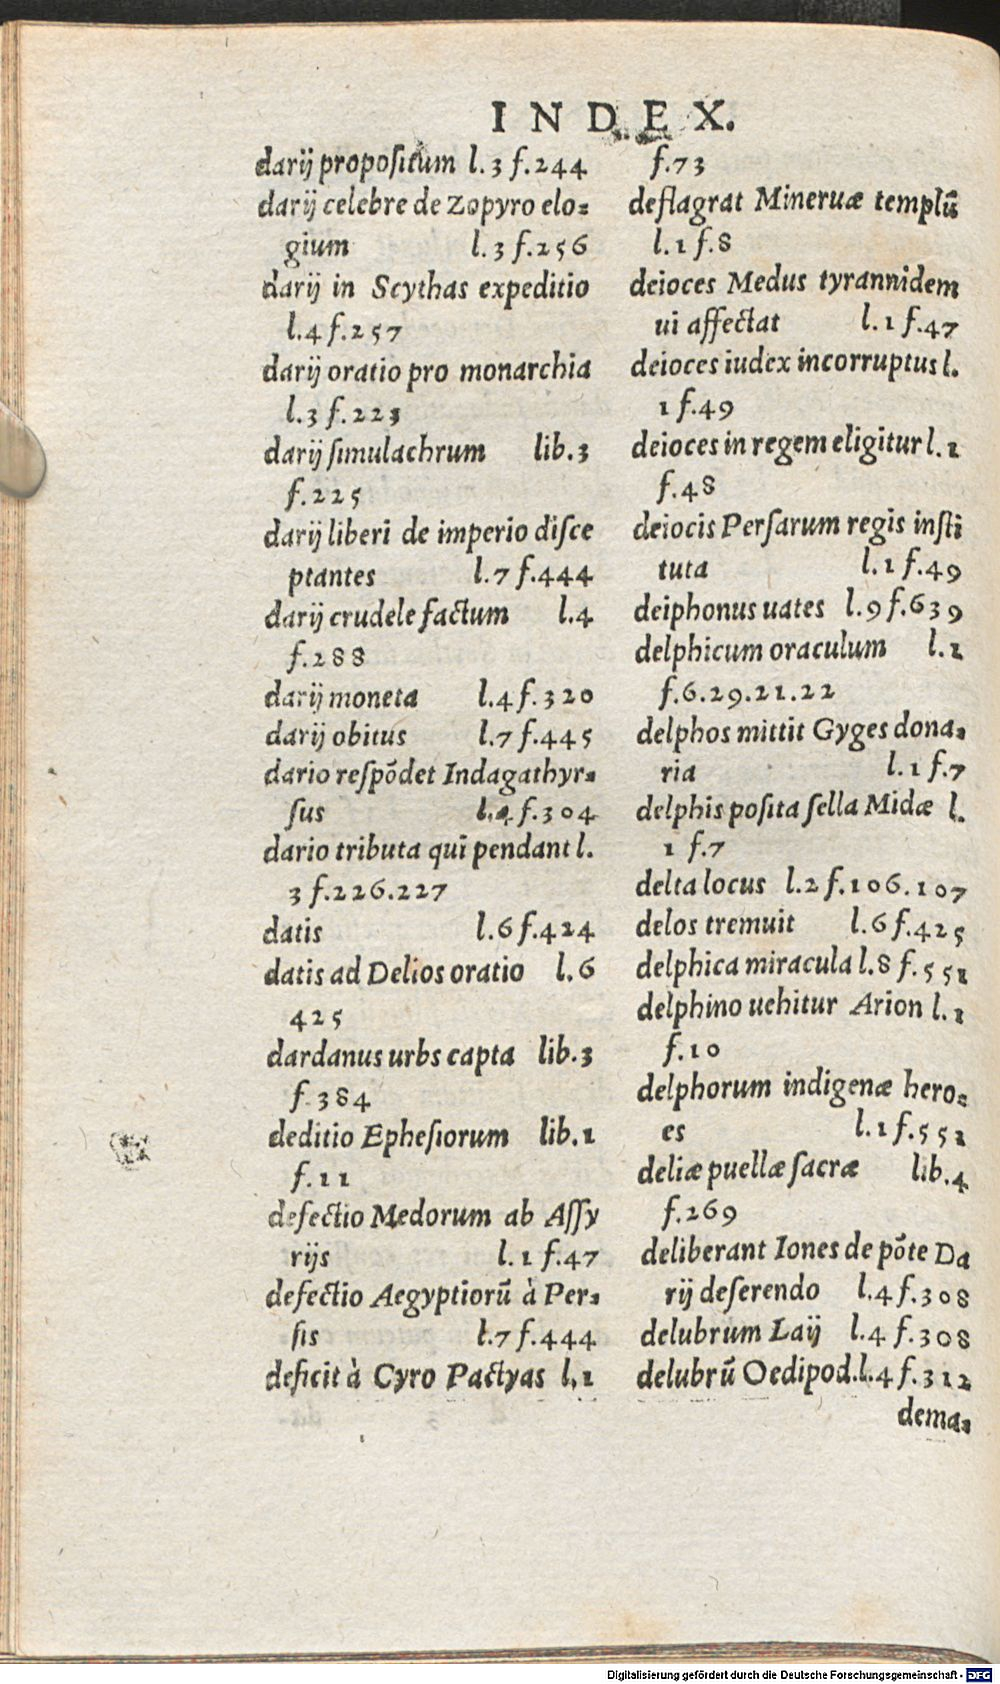 INDEX.
darij propoſitum l.3 f.244
darij celebre de Zopyro elo-
gium l.3 f.256
darij in Scythas expeditio
l.4 f.257
darij oratio pro monarchia
l.3 f.223
darij ſimulachrum lib.3
f.225
darij liberi de imperio diſce
ptantes l.7 f.444
darij crudele factum l.4
f.288
darij moneta l.4 f.320
darij obitus l.7 f.445
dario reſpōdet Indagathyr-
ſus l.4 f.304
dario tributa qui pendant l.
3 f.226.227
datis l.6 f.424
datis ad Delios oratio l.6
425
dardanus urbs capta lib.3
f.384
deditio Epheſiorum lib.1
f.11
defectio Medorum ab Aſſy
rijs l.1 f.47
defectio Aegyptiorū à Per-
ſis l.7 f.444
deficit à Cyro Pactyas l.1
f.73
deflagrat Mineruæ templū
l.1 f.8
deioces Medus tyrannidem
ui affectat l.1 f.47
deioces iudex incorruptus l.
1 f.49
deioces in regem eligitur l.1
f.48
deiocis Perſarum regis inſti
tuta l.1 f.49
deiphonus uates l.9 f.639
delphicum oraculum l.1
f.6.29.21.22
delphos mittit Gyges dona-
ria l.1 f.7
delphis poſita ſella Midæ l.
1 f.7
delta locus l.2 f.106.107
delos tremuit l.6 f.425
delphica miracula l.8 f.551
delphino uehitur Arion l.1
f.10
delphorum indigenæ hero-
es l.1 f.551
deliæ puellæ ſacræ lib.4
f.269
deliberant Iones de pōte Da
rij deſerendo l.4 f.308
delubrum Laij l.4 f.308
delubrū Oedipod.l.4 f.312
dema-
Digitalisierung gefördert durch die Deutsche Forschungsgemeinschaft - DFG